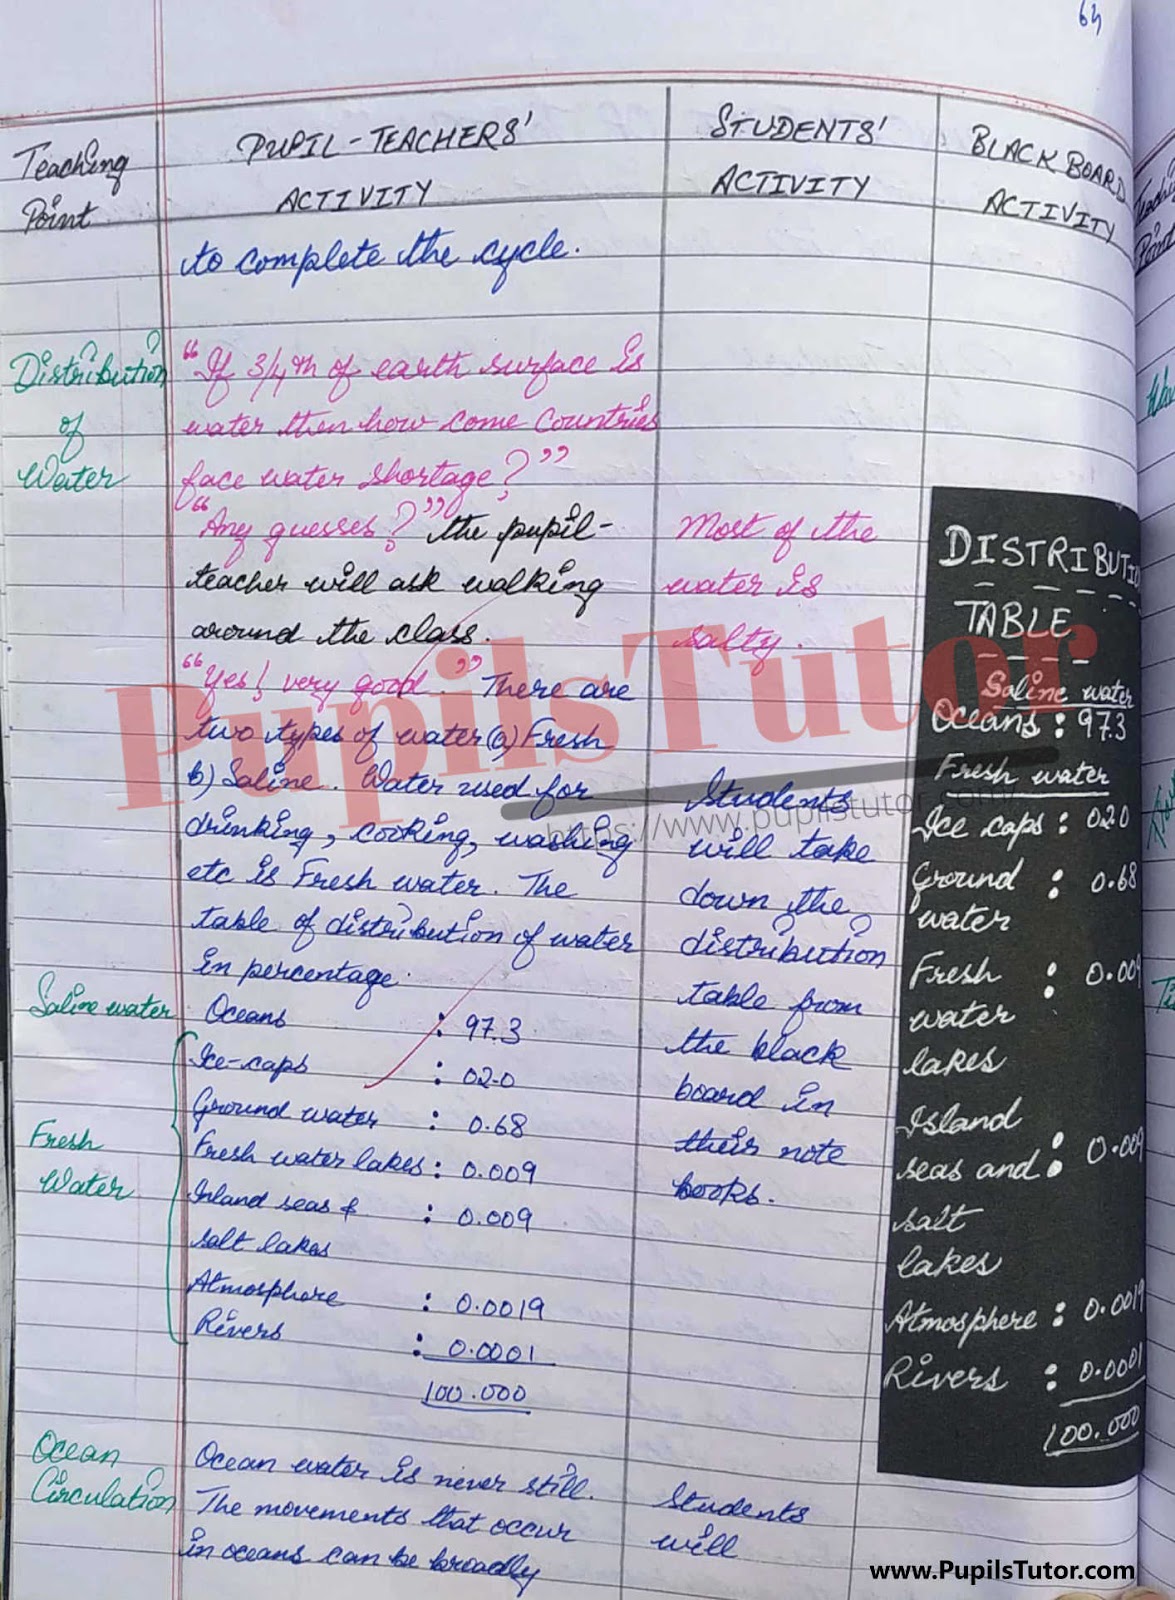 64
Teaching
Point
PUPIL-TEACHERS'
ACTIVITY
STUDENTS'
ACTIVITY
BLACK BOARD
ACTIVITY
to complete the cycle.
Distribution
of
Water
"If 3/4th of earth surface is
water then how come Countries
face water shortage?"
"Any guesses?" the pupil-
teacher will ask walking
around the class.
"Yes! very good." There are
two types of water (a) Fresh
b) Saline. Water used for
drinking, cooking, washing
etc is Fresh water. The
table of distribution of water
in percentage.
Most of the
water is
salty.
Students
will take
down the
distribution
table from
the black
board in
their note
books.
Saline water
Oceans : 97.3
Fresh
Water
Ice-caps : 02.0
Ground water : 0.68
Fresh water lakes : 0.009
Inland seas &
salt lakes : 0.009
Atmosphere : 0.0019
Rivers : 0.0001
100.000
DISTRIBUTIO
TABLE
Saline water
Oceans : 97.3
Fresh water
Ice caps : 020
Ground
water : 0.68
Fresh
water
lakes : 0.009
Island
seas and
salt
lakes : 0.009
Atmosphere : 0.0019
Rivers : 0.0001
100.000
Ocean
Circulation
Ocean water is never still.
The movements that occur
in oceans can be broadly
Students
will
PupilsTutor
https://www.pupilstutor.com/
www.PupilsTutor.com